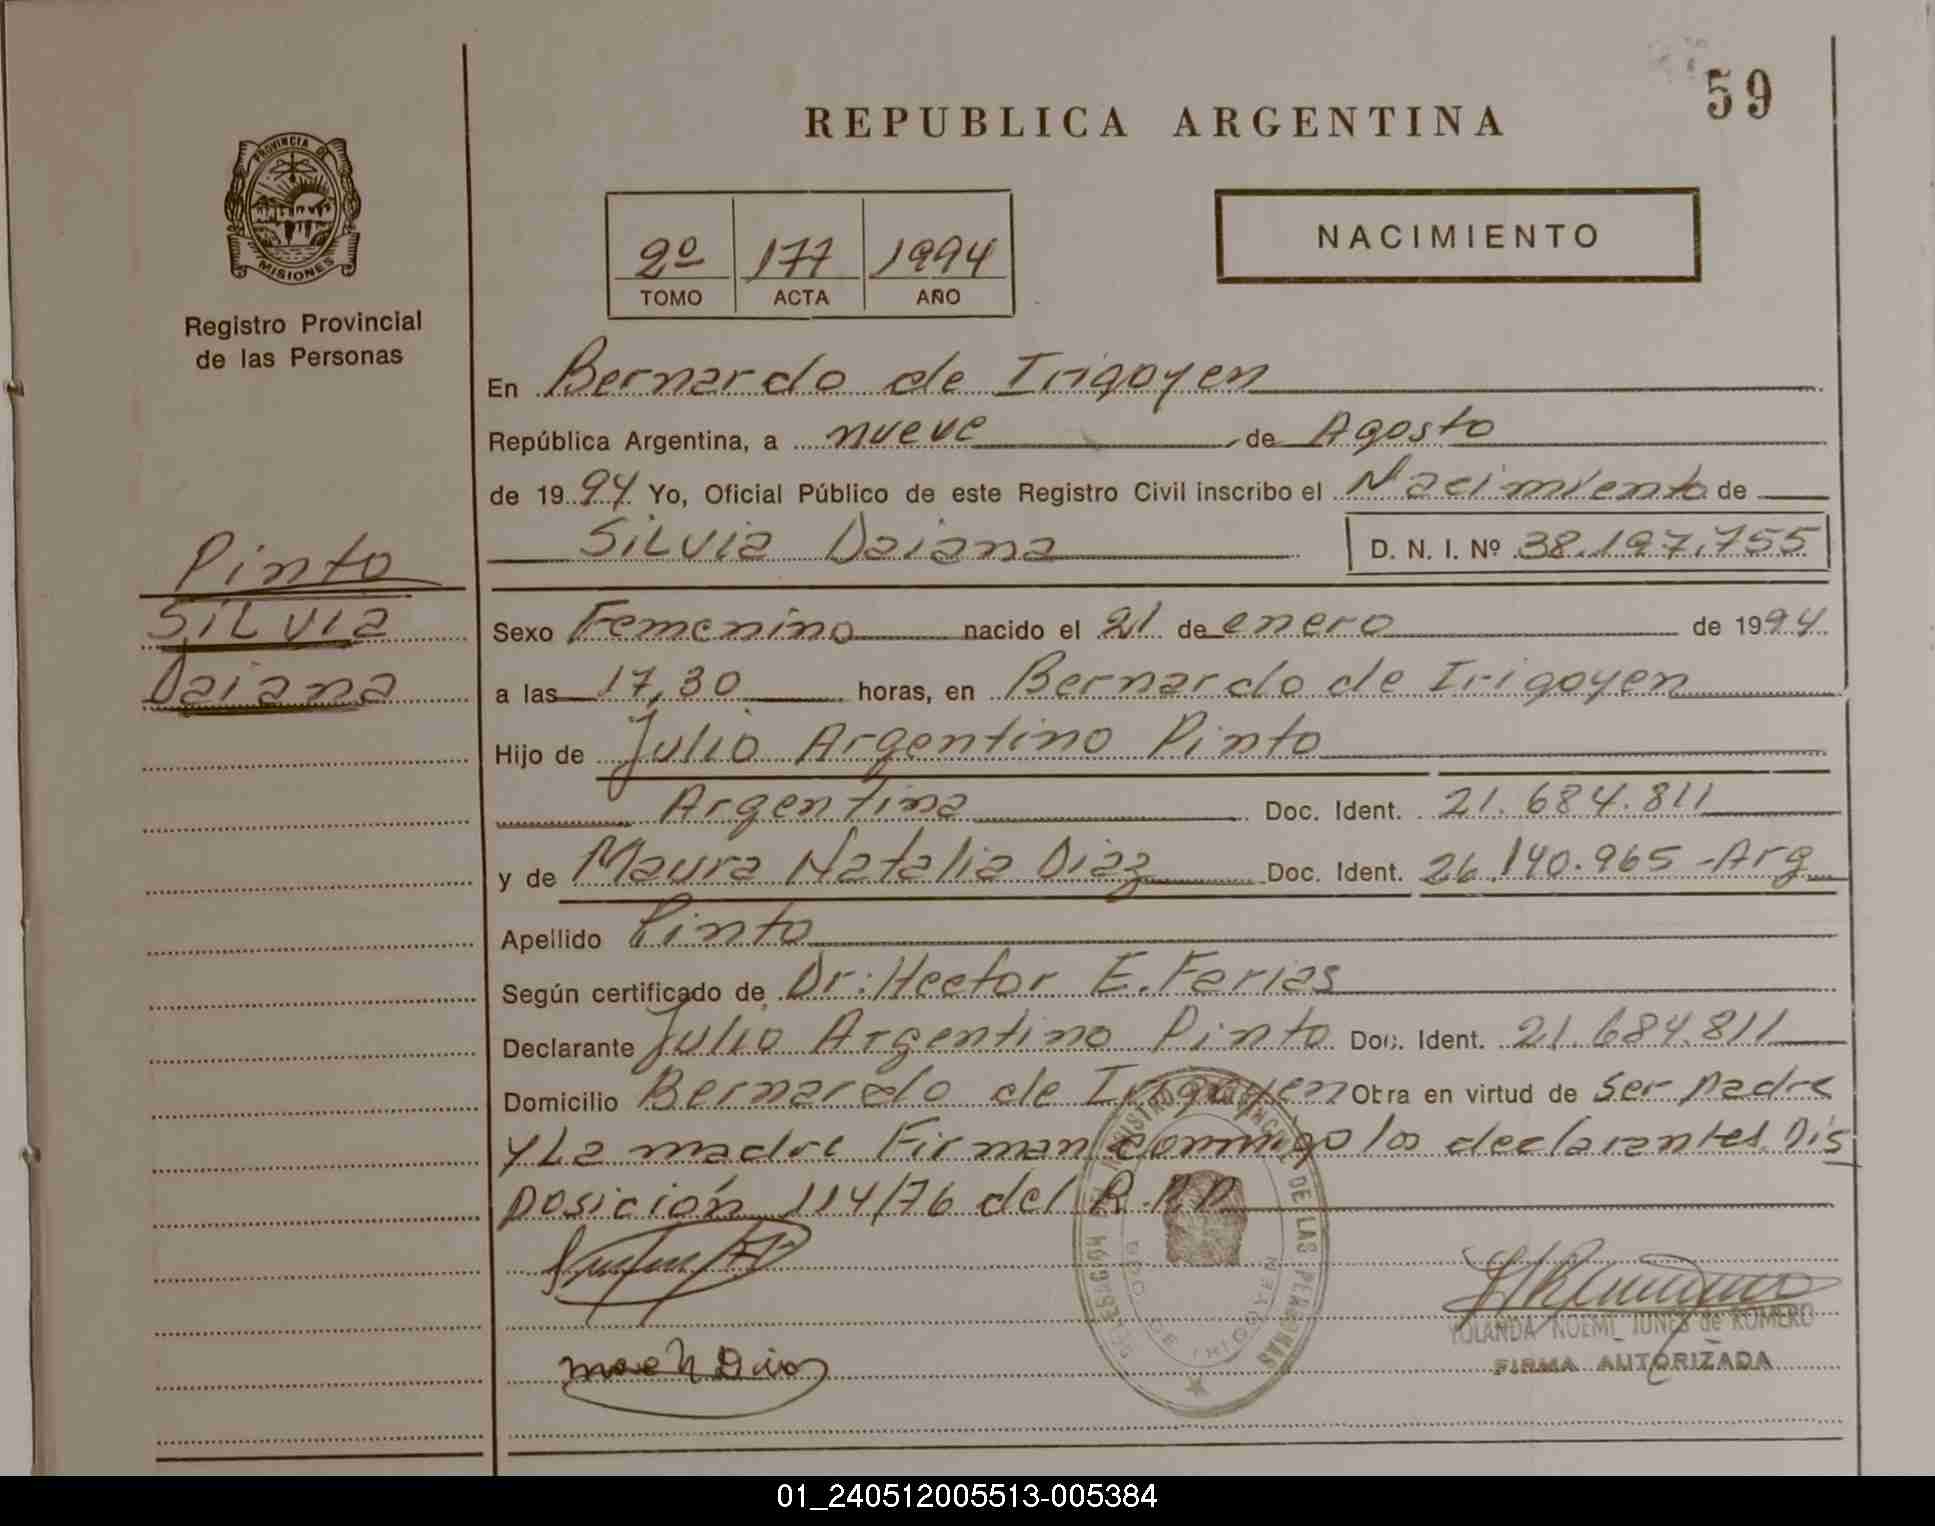 59
REPUBLICA ARGENTINA
PROVINCIA DE
MISIONES
Registro Provincial
de las Personas
2º 177 1994
TOMO ACTA AÑO
NACIMIENTO
En Bernardo de Irigoyen
República Argentina, a nueve de Agosto
de 1994 Yo, Oficial Público de este Registro Civil inscribo el Nacimiento de
Silvia Daiana D. N. I. Nº 38.197.755
Pinto
Silvia
Daiana
Sexo Femenino nacido el 21 de enero de 1994
a las 17,30 horas, en Bernardo de Irigoyen
Hijo de Julio Argentino Pinto
Argentina Doc. Ident. 21.684.811
y de Maura Natalia Diaz Doc. Ident. 26.140.965 - Arg
Apellido Pinto
Según certificado de Dr: Hector E. Farias
Declarante Julio Argentino Pinto Doc. Ident. 21.684.811
Domicilio Bernardo de Irigoyen Obra en virtud de ser padre
y La madre Firman conmigo los declarantes. Dis
posición 114/76 del R.P.P
DE LAS PERSONAS
DE IRIGOYEN
YOLANDA NOEMI JUNES de ROMERO
FIRMA AUTORIZADA
01_240512005513-005384